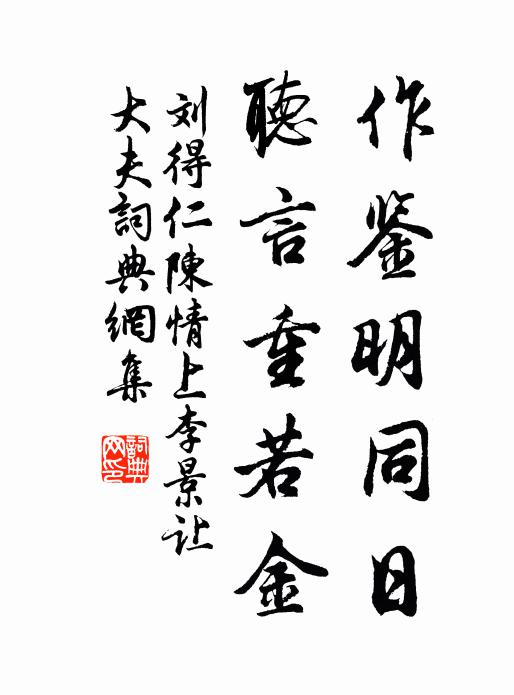 作鉴明同日
聽言重若金
刘得仁陳情上李景让
大夫詞典網集
詞典網印